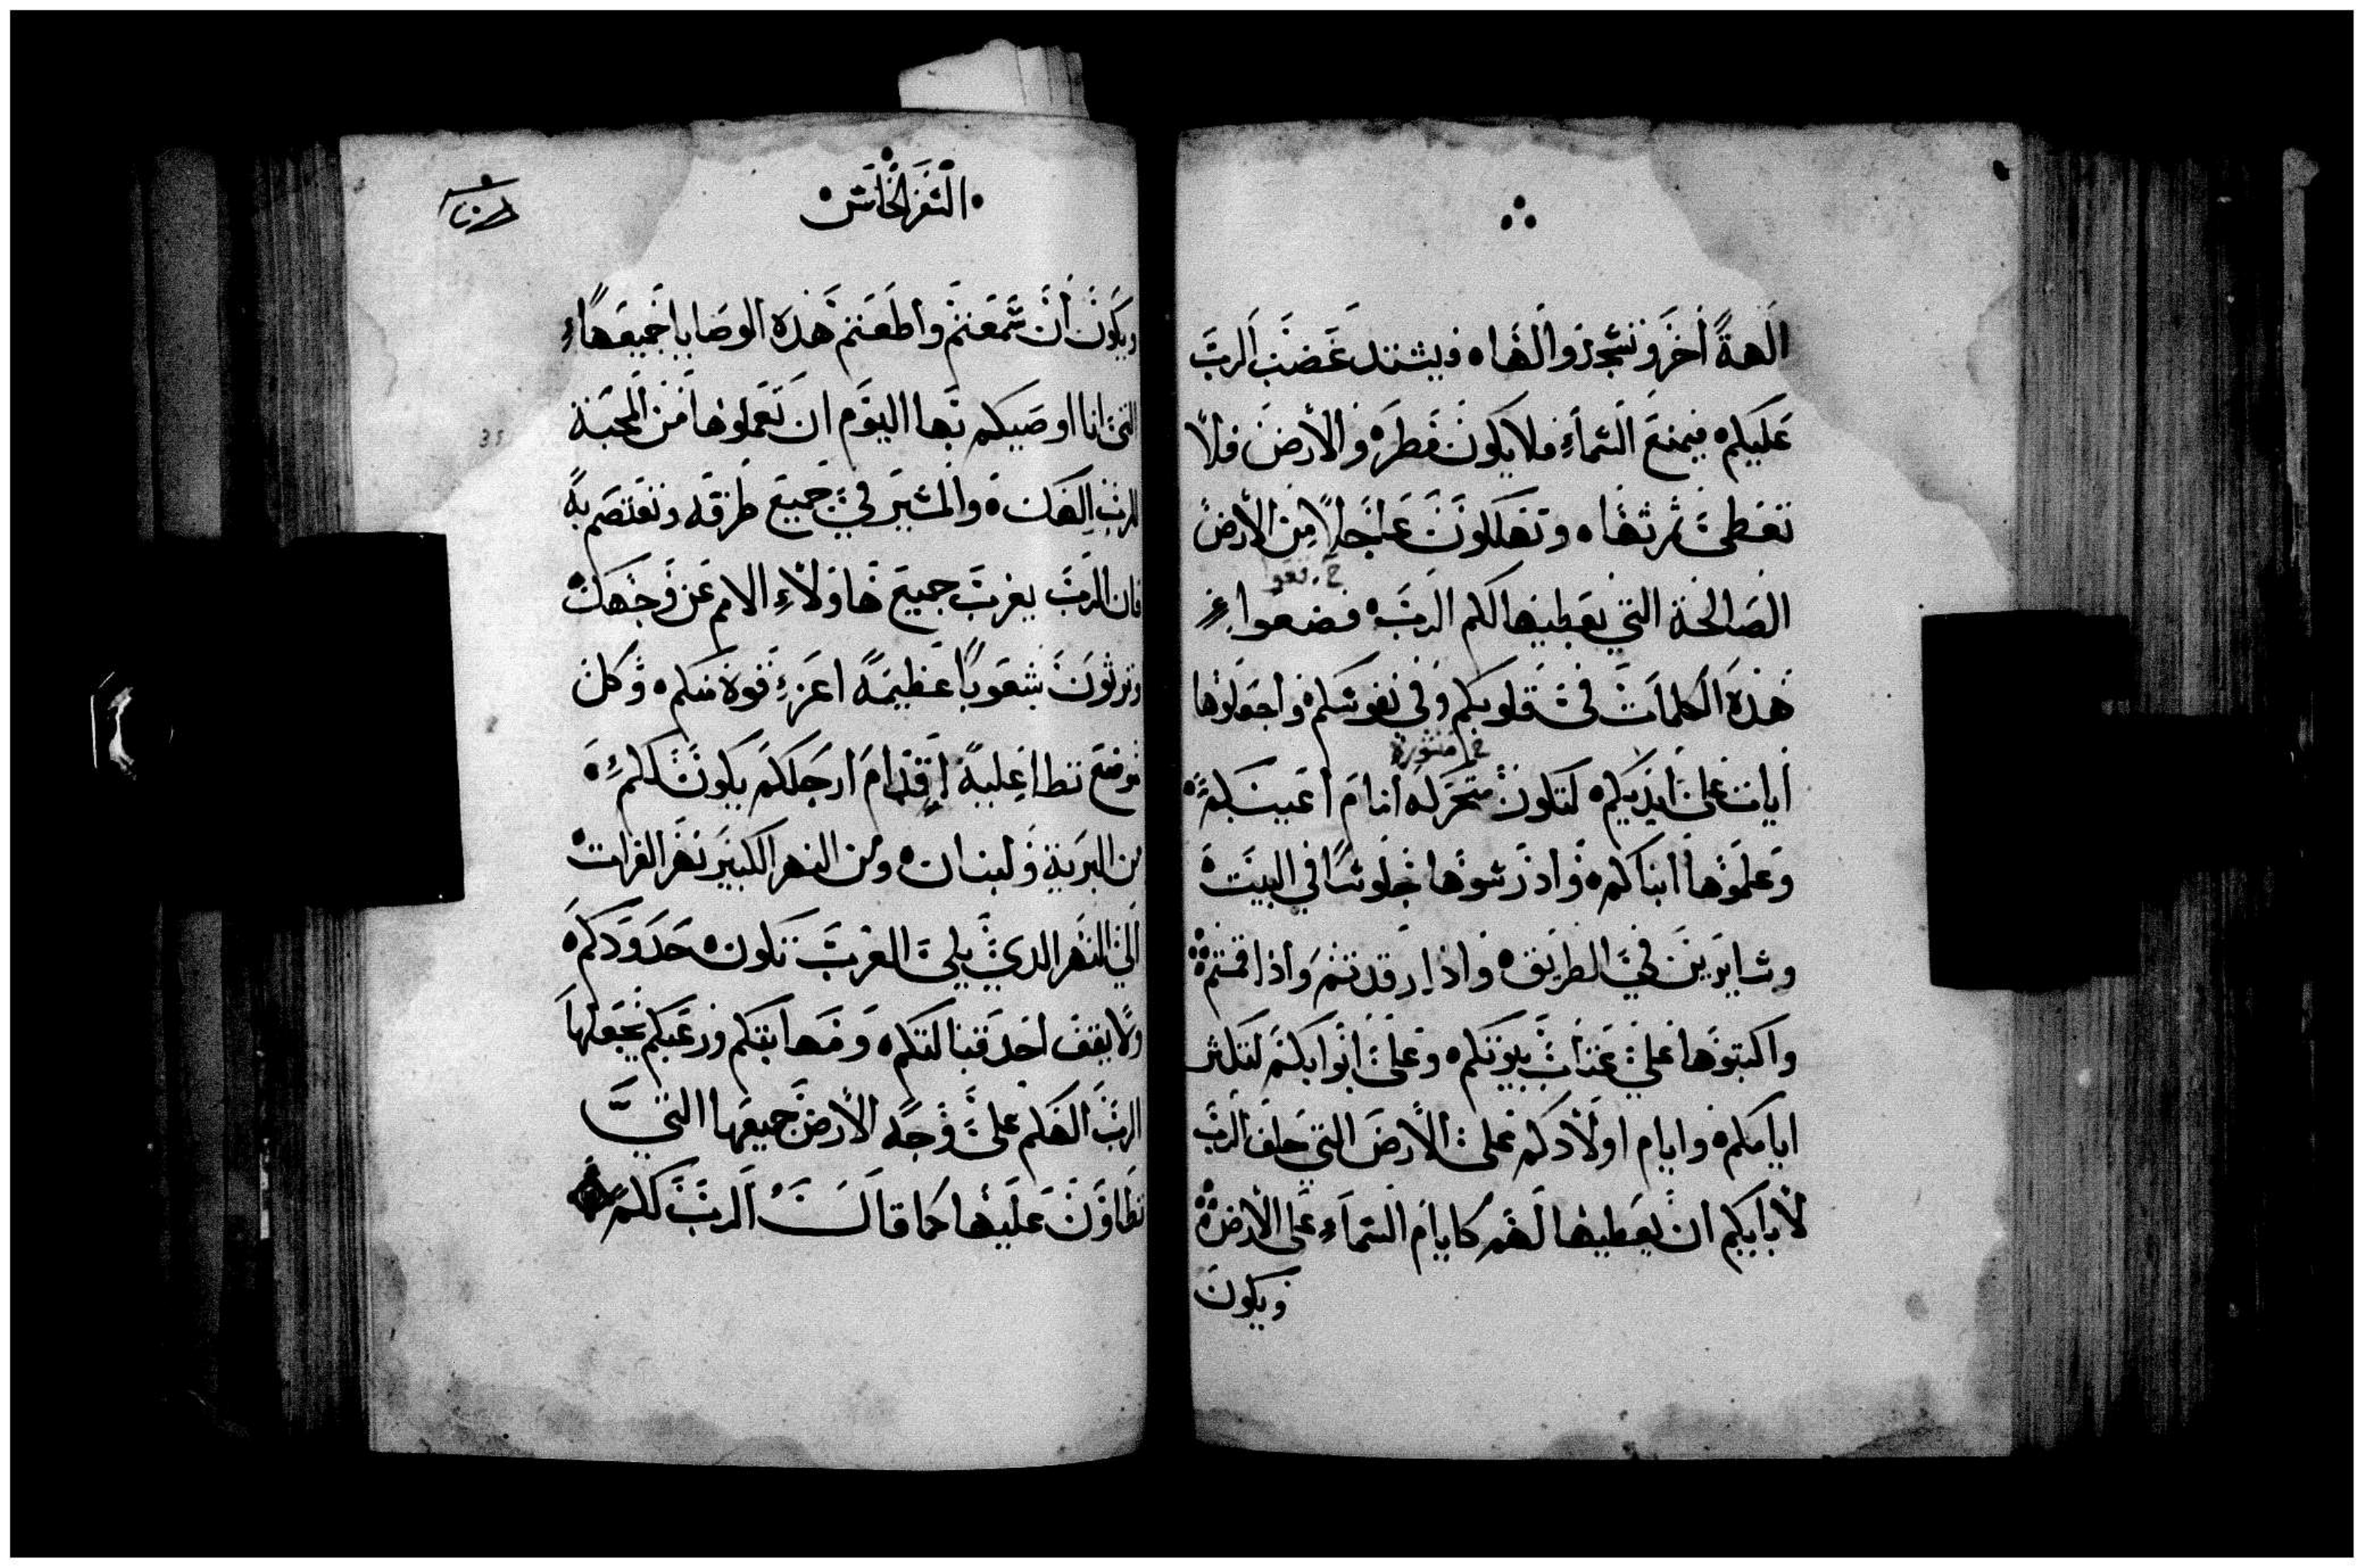 الهةً أخر وتسجدوا لها ه ويشتد غضب الرب
عليكم ه فيمنع السماءِ فلا يكون قطره والأرض فلا
تعطى ثمرتها ه وتهلكون عاجلاً من الأرض
الصالحة التي يعطيها لكم الرب ه فضعوا
هذه الكلمات فى قلوبكم وفي نفوسكم ه واجعلوها
آيات على ايديكم ه لتكون متحركه امام أعينكم ه
منثورة
وعلموها ابناكم ه وادرسوها جلوسًا في البيت ه
وسايرين في الطريق ه واذا رقدتم واذا قمتم ه
واكتبوها على عتاب بيوتكم ه وعلى ابوابكم لتكثر
ايامكم ه وايام اولادكم على الأرض التي حلف الرب
لأبايكم ان يعطيها لهم كايام السماءِ على الأرض ه
ويكون
السفر الخامس ه
ويكون أن سمعتم وأطعتم هذه الوصايا جميعهاءِ
التى انا اوصيكم بها اليوم ان تعملوها من المحبة
للرب الهك ه والمسير في جميع طرقه وتعتصم به
فان الرب يغرب جميع هاولاءِ الامم عن وجهك ه
وترثون شعوبًا عظيمة اعز قوة منكم ه وكل
موضع تطا عليه اقدام ارجلكم يكون لكم ه
من البرية ولبنان ه ومن النهر الكبير نهر الفرات ه
الي النهر الدي يلى الغرب تكون حدودكم ه
ولا يقف احد قبالتكم ه ومهابتكم ورعبكم يجعلها
الرب الهكم على وجه الأرض جميعها التي
تطاون عليها كما قال الرب لكم